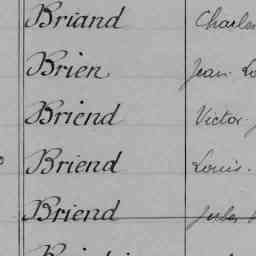 Briand Charles
Brien Jean
Briend Victor
Briend Louis
Briend Jules